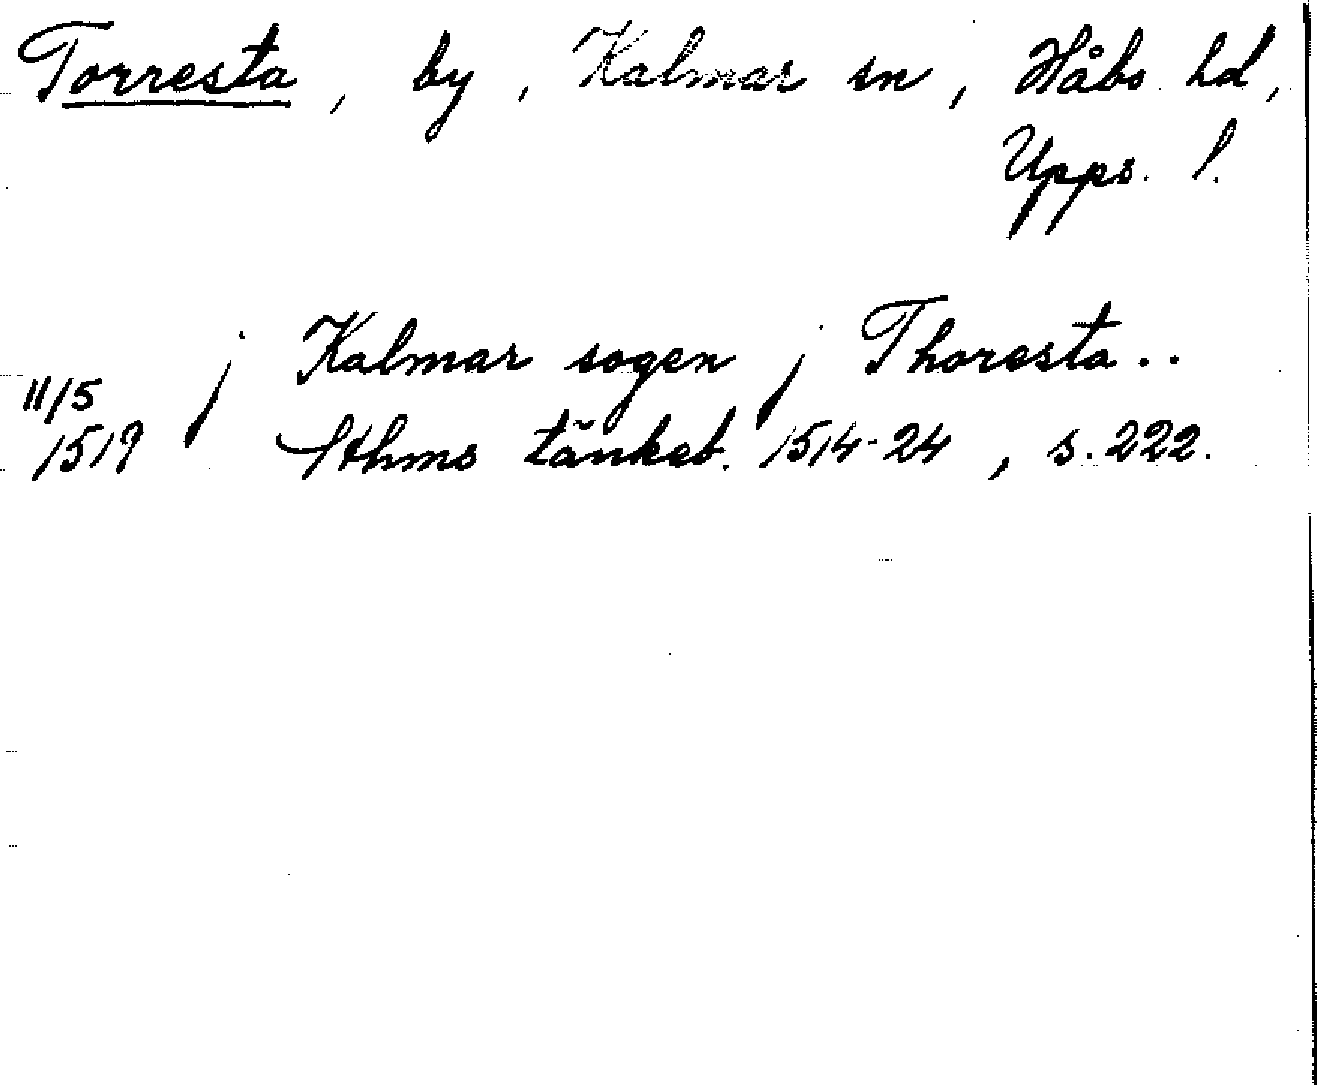 Torresta, by, Kalmar sn, Håbo hd,
Upps. l.
j Kalmar sogen j Thoresta..
11/5
1519 Sthms tänkeb. 1514-24, s. 222.